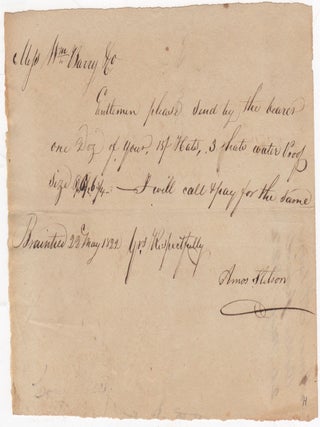 Mess Wm Barry & Co
Gentlemen please send by the bearer
one Doz of your, Hats, 3 water Proof
size I will call & pay for the same
Braintree 22d May 1822 Yrs Respectfully
Amos Stetson